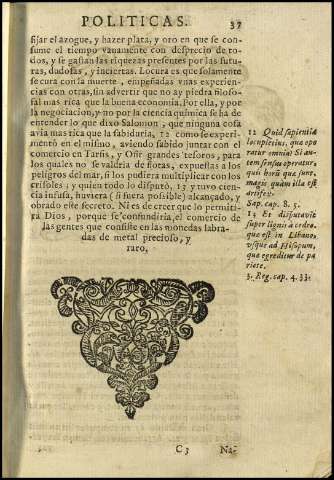 POLITICAS.
37
fijar el azogue, y hazer plata, y oro en que se con-
sume el tiempo vanamente con desprecio de to-
dos, y se gastan las riquezas presentes por las futu-
ras, dudosas, y inciertas. Locura es que solamente
se cura con la muerte, empeñadas vnas experien-
cias con otras, sin advertir que no ay piedra filoso-
fal mas rica que la buena economia. Por ella, y por
la negociacion, y no por la ciencia quimica se ha de
entender lo que dixo Salomon, que ninguna cosa
avia mas rica que la sabiduria, 12 como se experi-
mentò en el mismo, aviendo sabido juntar con el
comercio en Tarsis, y Ofir grandes tesoros, para
los quales no se valdria de flotas, expuestas a los
peligros del mar, si los pudiera multiplicar con los
crisoles, y quien todo lo disputò, 13 y tuvo cien-
cia infusa, huviera (si fuera possible) alcançado, y
obrado este secreto. Ni es de creer que lo permiti-
rà Dios, porque se confundiria, el comercio de
las gentes que consiste en las monedas labra-
das de metal precioso, y
raro.
12 Quid sapientiâ
locupletius, quæ ope
ratur omnia? Si au-
tem sensus operatur,
quis horũ quæ sunt,
magis quàm illa est
artifex.
Sap. cap. 8. 5.
13 Et disputavit
super lignis à cedro,
quæ est in Libano,
vsque ad Hisopum,
quæ egreditur de pa
riete.
3. Reg. cap. 4. 33.
C 3
Na-